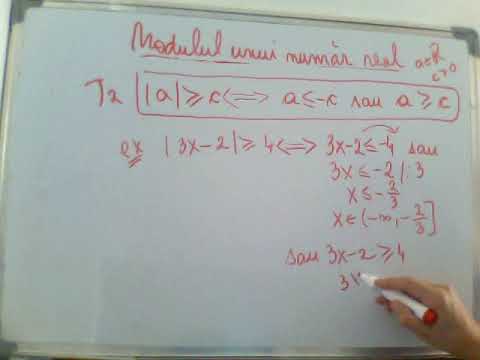 Modulul unui număr real a∈R
c>0
T2 |a|≥c⟺ a≤-c sau a≥c
ex |3x-2|≥4⟺ 3x-2≤-4 sau
3x≤-2|:3
x≤-2/3
x∈(-∞,-2/3]
sau 3x-2≥4
3x